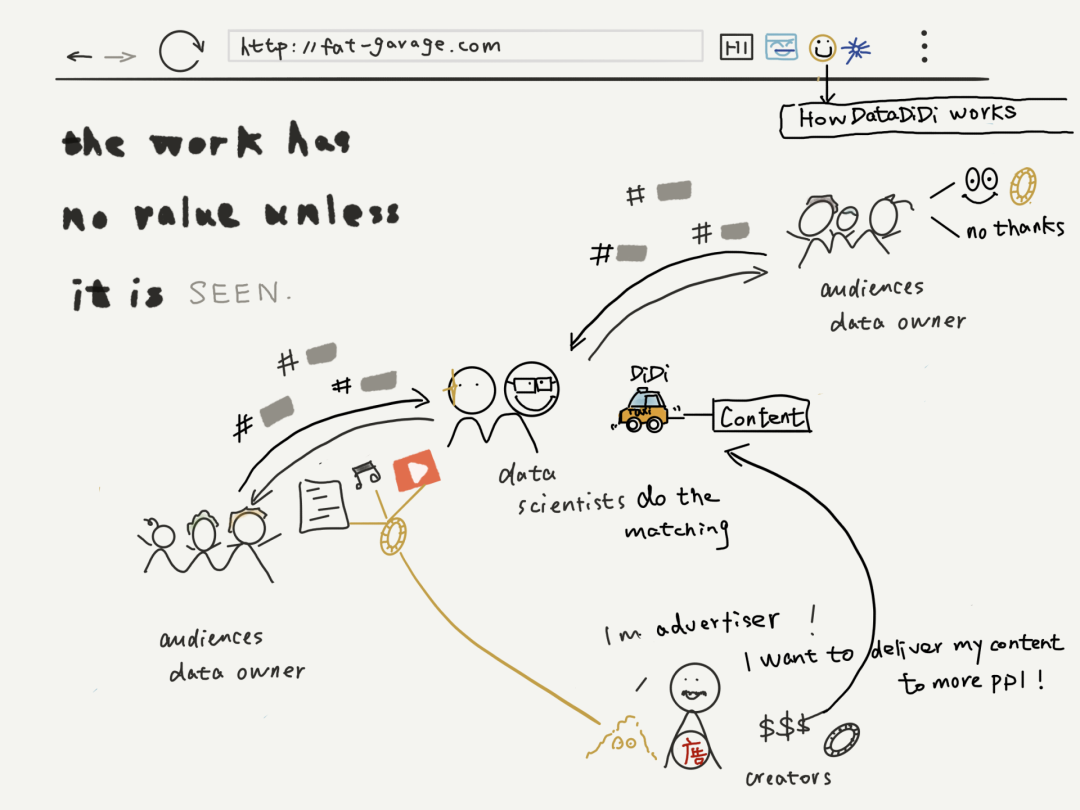 http://fat-garage.com
How DataDiDi works
the work has
no value unless
it is SEEN.
#
#
#
no thanks
audiences
data owner
#
#
#
DiDi
taxi
Content
data
scientists do the
matching
audiences
data owner
I'm advertiser !
I want to deliver my content
to more ppl !
$$$
creators